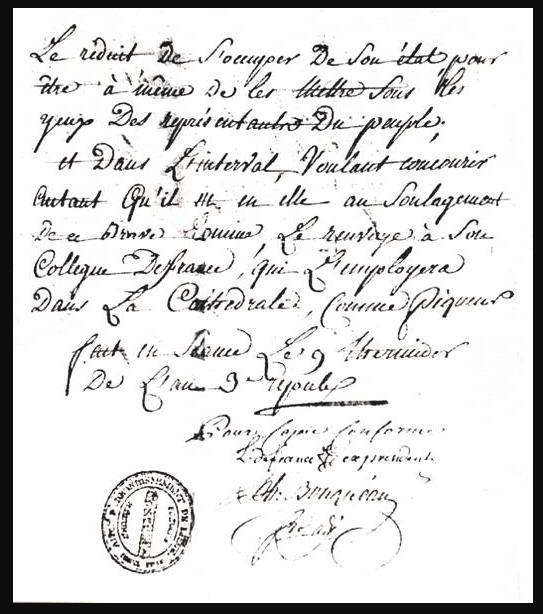 Le réduit De S'ocuper De Son état pour
être à même de les Mettre Sous les
yeux Des représentants Du peuple.
et Dans L'interval, Voulant concourir
autant Qu'il en elle au Soulagement
De ce Brave homme, Le renvoye à Son
Collegue Defrance, qui L'employera
Dans La Cathedrale, Comme Piqueur
fait en Séance Le 9 thermidor
De L'an 3e repule
Pour Copie Conforme
L. defrance
ARRONDISSEMENT DE LIEGE